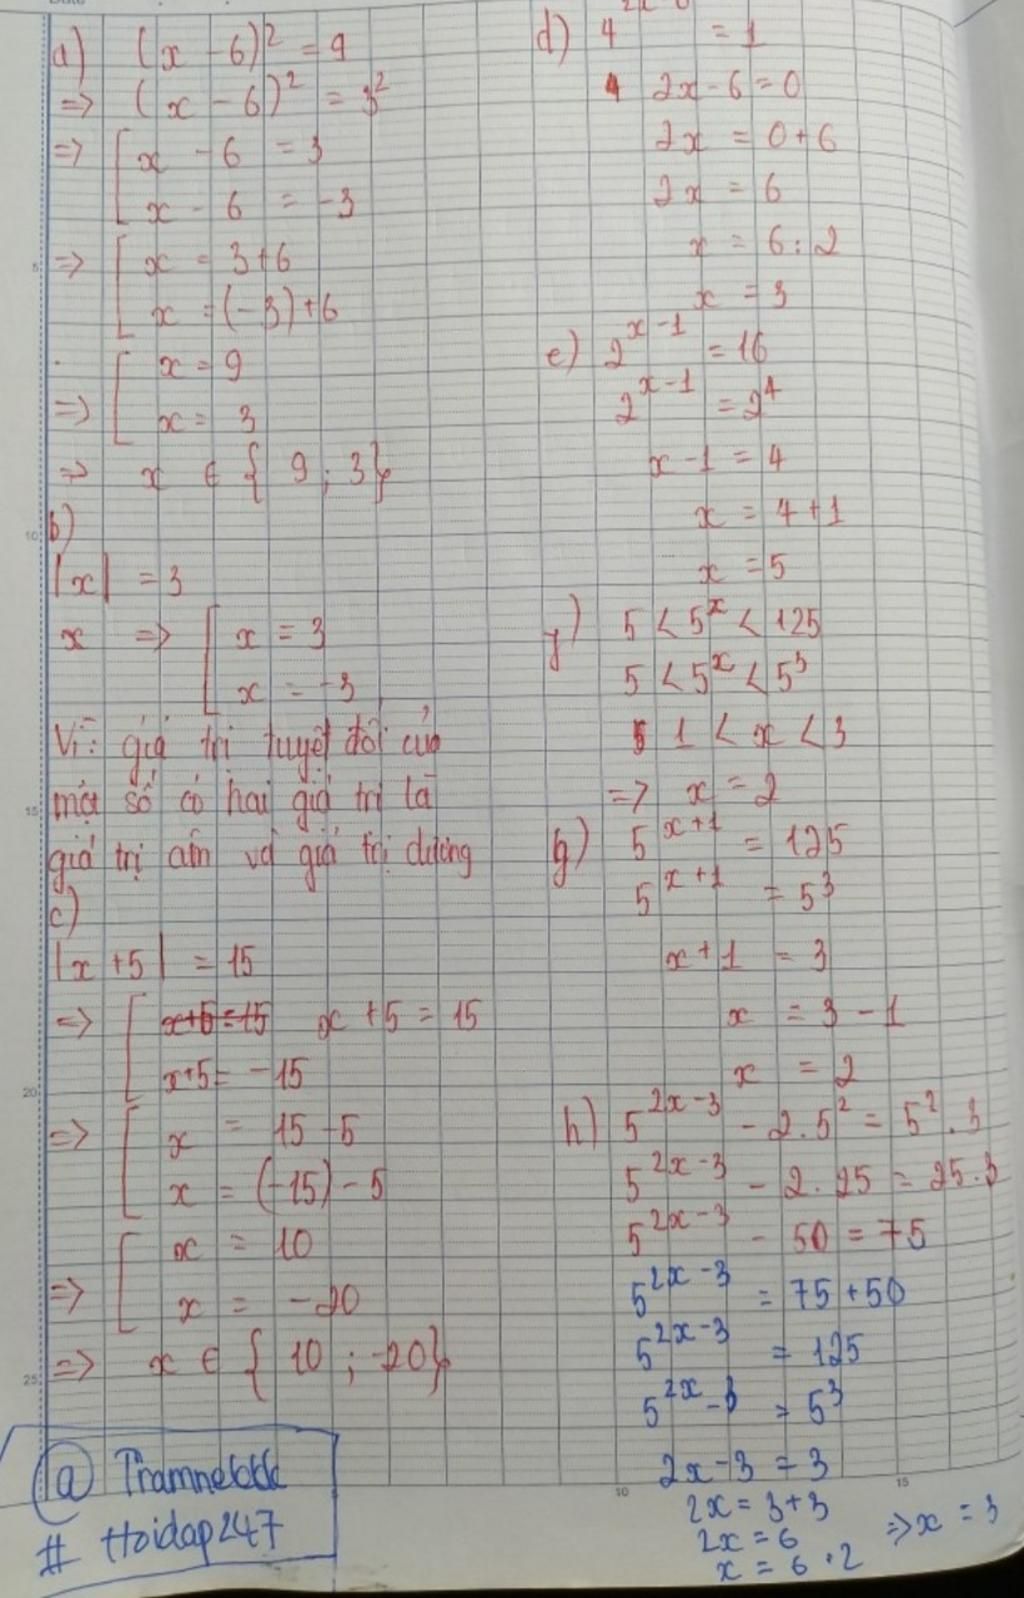 a) (x - 6)² = 9
=> (x - 6)² = 3²
=> [ x - 6 = 3
x - 6 = -3
=> [ x = 3+6
x = (-3)+6
=> [ x = 9
x = 3
=> x ∈ { 9 ; 3}
b)
|x| = 3
x => [ x = 3
x = -3
Vì: giá trị tuyệt đối của
một số có hai giá trị là
giá trị âm và giá trị dương
c)
|x +5| = 15
=> [ x+5=15 x +5 = 15
x+5= -15
=> [ x = 15 -5
x = (-15) - 5
=> [ x = 10
x = -20
=> x ∈ { 10 ; -20}
@ Tramnelokk
# Hoidap247
d) 4^(2x-6) = 1
2x - 6 = 0
2x = 0+6
2x = 6
x = 6:2
x = 3
e) 2^(x-1) = 16
2^(x-1) = 2⁴
x - 1 = 4
x = 4+1
x = 5
f) 5 < 5^x < 125
5 < 5^x < 5³
1 < x < 3
=> x = 2
g) 5^(x+1) = 125
5^(x+1) = 5³
x+1 = 3
x = 3 - 1
x = 2
h) 5^(2x-3) - 2.5² = 5².3
5^(2x-3) - 2.25 = 25.3
5^(2x-3) - 50 = 75
5^(2x-3) = 75+50
5^(2x-3) = 125
5^(2x-3) = 5³
2x-3 = 3
2x = 3+3
2x = 6
x = 6:2 => x = 3